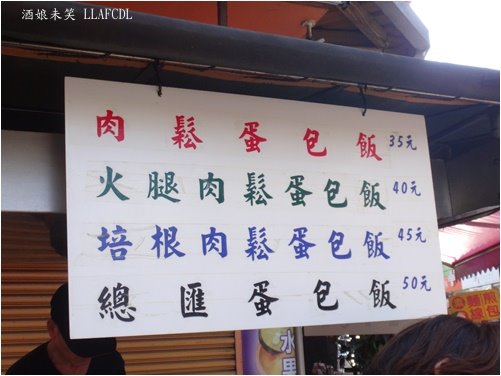 酒娘未笑 LLAFCDL
肉鬆蛋包飯 35元
火腿肉鬆蛋包飯 40元
培根肉鬆蛋包飯 45元
總匯蛋包飯 50元
水果